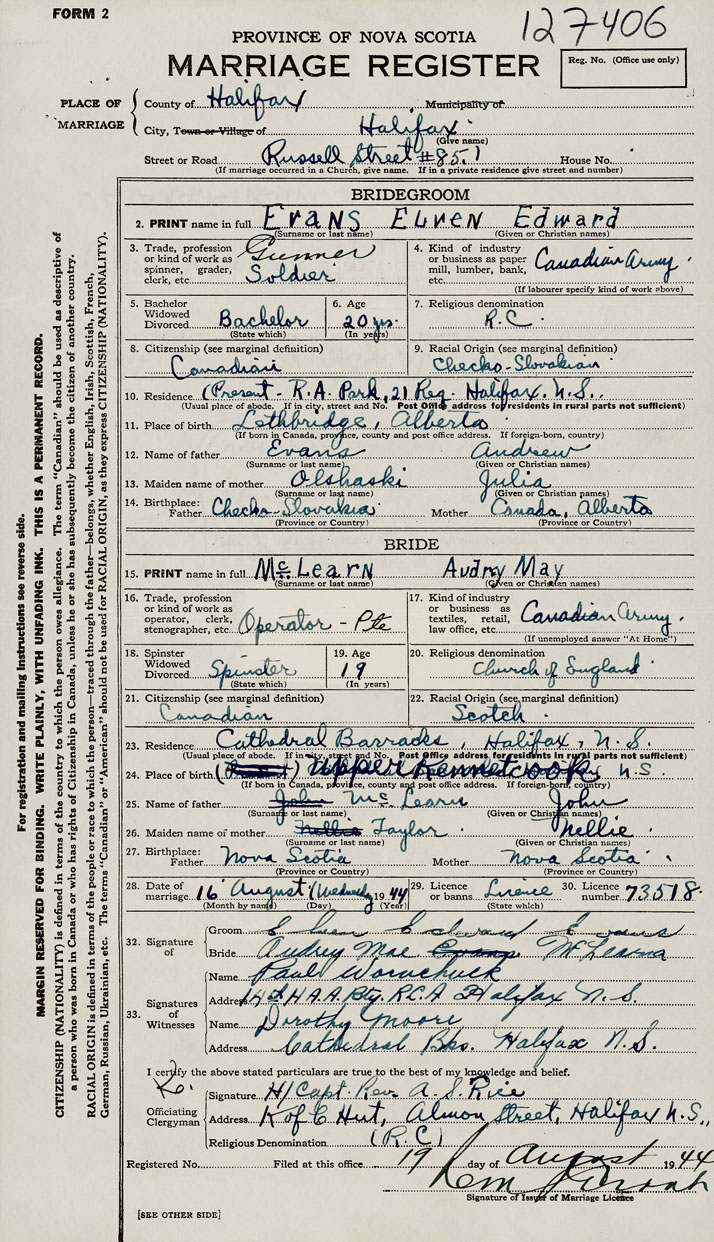 FORM 2
127406
PROVINCE OF NOVA SCOTIA
MARRIAGE REGISTER
Reg. No. (Office use only)
PLACE OF MARRIAGE
County of Halifax Municipality of
City, Town or Village of Halifax
(Give name)
Street or Road Russell Street #85 House No.
(If marriage occurred in a Church, give name. If in a private residence give street and number)
BRIDEGROOM
2. PRINT name in full Evans Elven Edward
(Surname or last name) (Given or Christian names)
3. Trade, profession or kind of work as spinner, grader, clerk, etc. Gunner Soldier
4. Kind of industry or business as paper mill, lumber, bank, etc. Canadian Army
(If labourer specify kind of work above)
5. Bachelor Widowed Divorced Bachelor (State which)
6. Age 20 yrs. (In years)
7. Religious denomination R.C.
8. Citizenship (see marginal definition) Canadian
9. Racial Origin (see marginal definition) Checko-Slovakian
10. Residence (Present - R.A. Park, 21 Reg. Halifax. N.S.
(Usual place of abode. If in city, street and No. Post Office address for residents in rural parts not sufficient)
11. Place of birth Lethbridge, Alberta
(If born in Canada, province, county and post office address. If foreign-born, country)
12. Name of father Evans Andrew
(Surname or last name) (Given or Christian names)
13. Maiden name of mother Olshaski Julia
(Surname or last name) (Given or Christian names)
14. Birthplace: Father Checko-Slovakia Mother Canada, Alberta
(Province or Country) (Province or Country)
BRIDE
15. PRINT name in full McLearn Audrey May
(Surname or last name) (Given or Christian names)
16. Trade, profession or kind of work as operator, clerk, stenographer, etc. Operator - Pte
17. Kind of industry or business as textiles, retail, law office, etc. Canadian Army
(If unemployed answer "At Home")
18. Spinster Widowed Divorced Spinster (State which)
19. Age 19 (In years)
20. Religious denomination Church of England
21. Citizenship (see marginal definition) Canadian
22. Racial Origin (see marginal definition) Scotch
23. Residence Cathedral Barracks, Halifax, N.S.
(Usual place of abode. If in city, street and No. Post Office address for residents in rural parts not sufficient)
24. Place of birth Upper Kennetcook N.S.
(If born in Canada, province, county and post office address. If foreign-born, country)
25. Name of father John McLearn John
(Surname or last name) (Given or Christian names)
26. Maiden name of mother Nellie Taylor Nellie
(Surname or last name) (Given or Christian names)
27. Birthplace: Father Nova Scotia Mother Nova Scotia
(Province or Country) (Province or Country)
28. Date of marriage 16 August (Wednesday 1944
(Month by name) (Day) (Year)
29. Licence or banns Licence (State which)
30. Licence number 73518
32. Signature of
Groom Elven Edward Evans
Bride Audrey Mae Evans McLearn
33. Signatures of Witnesses
Name Paul Worochuck
Address 14th H.A.A. Bty. R.C.A Halifax N.S.
Name Dorothy Moore
Address Cathedral Bks. Halifax N.S.
I certify the above stated particulars are true to the best of my knowledge and belief.
Officiating Clergyman
Signature H/Capt. Rev. A. S. Rice
Address K of C Hut, Almon Street, Halifax N.S.,
Religious Denomination (R.C)
Registered No. Filed at this office 19 day of August 1944
Signature of Issuer of Marriage Licence
[SEE OTHER SIDE]
For registration and mailing instructions see reverse side.
MARGIN RESERVED FOR BINDING. WRITE PLAINLY, WITH UNFADING INK. THIS IS A PERMANENT RECORD.
CITIZENSHIP (NATIONALITY) is defined in terms of the country to which the person owes allegiance. The term "Canadian" should be used as descriptive of
a person who was born in Canada or who has rights of Citizenship in Canada, unless he or she has subsequently become the citizen of another country.
RACIAL ORIGIN is defined in terms of the people or race to which the person—traced through the father—belongs, whether English, Irish, Scottish, French,
German, Russian, Ukrainian, etc. The terms "Canadian" or "American" should not be used for RACIAL ORIGIN, as they express CITIZENSHIP (NATIONALITY).